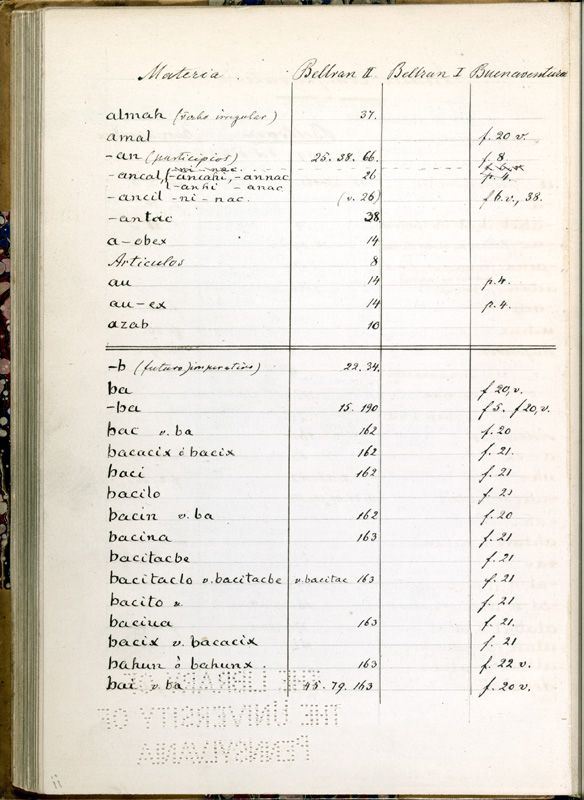 Materia Beltran II Beltran I Buenaventura
almah (verbo irregular) 37.
amal f. 20 v.
-an (participios) 25. 38. 66. f. 8.
-ni -nac.
-ancal, -ancahi, -annac 26 p. 4.
-anhi -anac
-ancil -ni - nac. (v. 26) f 6. v., 38.
-antac 28.
a-obex 14
Articulos 8
au 14 p. 4.
au-ex 14 p. 4.
azab 10
-b (futuro) imperativo) 22. 34.
ba f 20, v.
-ba 15. 190 f 5. f 20, v.
bac v. ba 162 f. 20
bacacix ó bacix 162 f. 21.
baci 162 f. 21
bacilo f. 21
bacin v. ba 162 f. 20
bacina 163 f. 21
bacitacbe f. 21
bacitaclo v. bacitacbe v. bacitac 163 f. 21
bacito v. f. 21
baciua 163 f. 21.
bacix v. bacacix f. 21
bahun ò bahunx. 163 f. 22 v.
bai v. ba 45. 79. 163 f. 20 v.
THE LIBRARY OF
THE UNIVERSITY OF
PENNSYLVANIA
ii